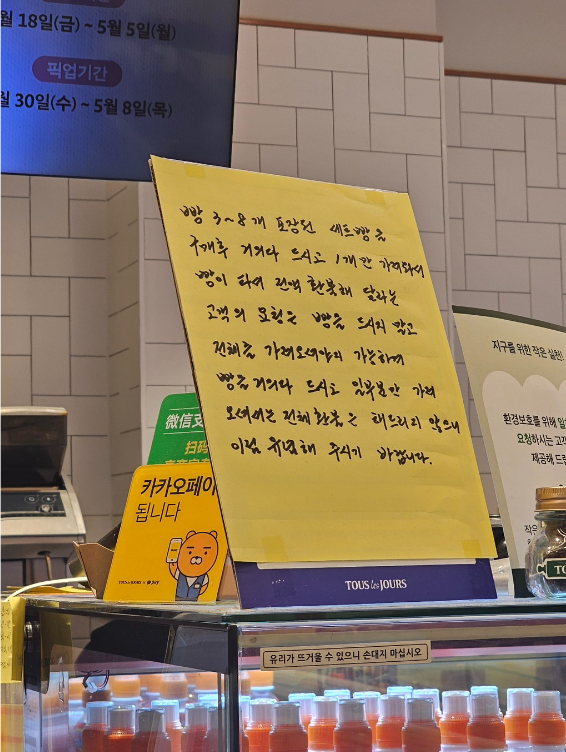 월 18일(금) ~ 5월 5일(월)
픽업기간
월 30일(수) ~ 5월 8일(목)
빵 3~8개 포장된 세트빵을
구매후 거의다 드시고 1개만 가져와서
빵이 타서 전액 환불해 달라는
고객의 요청은 빵을 드시지 말고
전체를 가져오셔야지 가능하며
빵을 거의다 드시고 일부분만 가져
오셔서는 전체환불은 해드리지 않으니
이점 유념해 주시기 바랍니다.
TOUS les JOURS
微信支
扫码
카카오페이
됩니다
TOUS les JOURS X pay
지구를 위한 작은 실천!
환경보호를 위해
요청하시는 고객
제공해 드
작은
유리가 뜨거울 수 있으니 손대지 마십시오